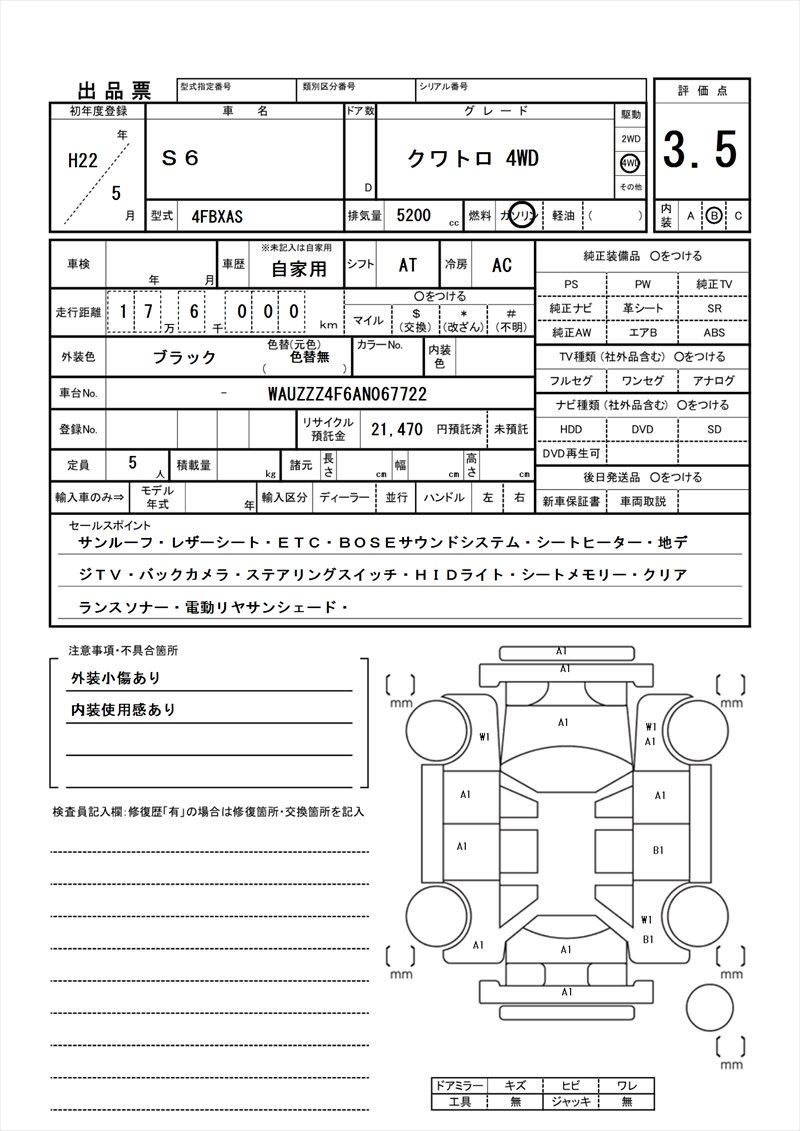 出品票 型式指定番号 類別区分番号 シリアル番号
評価点
3.5
内装 A B C
初年度登録 車名 ドア数 グレード 駆動
H22 年 5 月
S6
D
クワトロ 4WD
2WD
4WD
その他
型式 4FBXAS 排気量 5200 cc 燃料 ガソリン 軽油 ( )
車検 年 月 車歴 ※未記入は自家用 自家用 シフト AT 冷房 AC
走行距離 17万 6千 000 km
〇をつける
マイル $(交換) *(改ざん) #(不明)
外装色 ブラック 色替(元色) ( 色替無 ) カラーNo. 内装色
車台No. - WAUZZZ4F6AN067722
登録No. リサイクル預託金 21,470 円預託済 未預託
定員 5 人 積載量 kg 諸元 長さ cm 幅 cm 高さ cm
輸入車のみ⇒ モデル年式 年 輸入区分 ディーラー 並行 ハンドル 左 右
純正装備品 〇をつける
PS PW 純正TV
純正ナビ 革シート SR
純正AW エアB ABS
TV種類(社外品含む) 〇をつける
フルセグ ワンセグ アナログ
ナビ種類(社外品含む) 〇をつける
HDD DVD SD
DVD再生可
後日発送品 〇をつける
新車保証書 車両取説
セールスポイント
サンルーフ・レザーシート・ETC・BOSEサウンドシステム・シートヒーター・地デ
ジTV・バックカメラ・ステアリングスイッチ・HIDライト・シートメモリー・クリア
ランスソナー・電動リヤサンシェード・
注意事項・不具合箇所
外装小傷あり
内装使用感あり
検査員記入欄:修復歴「有」の場合は修復箇所・交換箇所を記入
A1
A1
mm mm
A1
W1 W1
A1
A1 A1
A1 B1
W1
A1 A1 B1
mm mm
A1
mm
ドアミラー キズ ヒビ ワレ
工具 無 ジャッキ 無